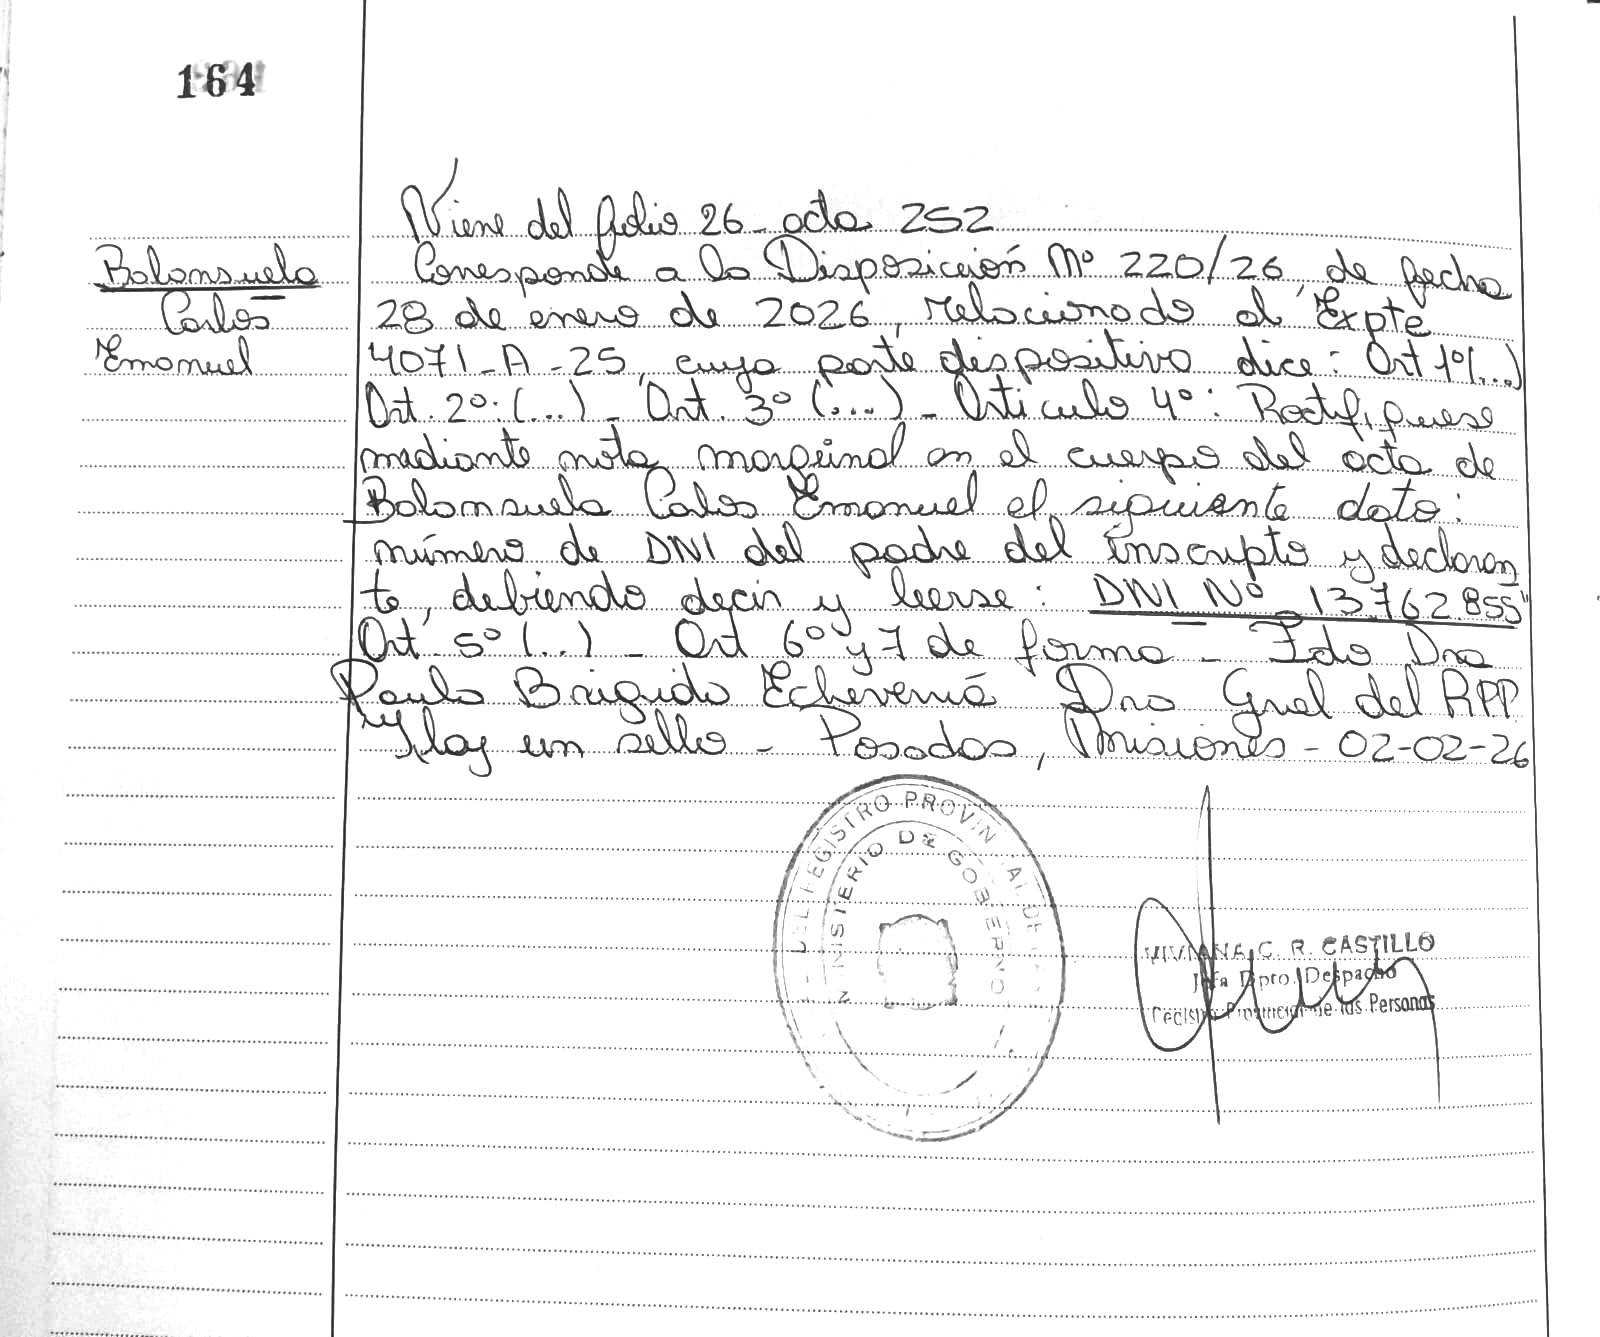 164
Viene del folio 26 - acta 252
Balansuela
Carlos
Emanuel
Corresponde a la Disposición Nº 220/26, de fecha
28 de enero de 2026, relacionado al Expte
4071-A-25, cuya parte dispositiva dice: Art 1º(...)
Art. 2º: (...) - Art. 3º (...) - Articulo 4º: Rectifiquese
mediante nota marginal en el cuerpo del acta de
Balansuela Carlos Emanuel el siguiente dato:
número de DNI del padre del inscripto y declaran
te, debiendo decir y leerse: DNI Nº 13.762.855"
Art. 5º (..) - Art 6º y 7 de forma - Fdo Dra
Paula Brigido Echeverriá Dra Gral del RPP
Hay un sello - Posadas, Misiones - 02-02-26
DEL REGISTRO PROVIN AL DE
MINISTERIO DE GOBIERNO
VIVIANA C. R. CASTILLO
Jefa Dpro. Despacho
Registro Provincial de las Personas